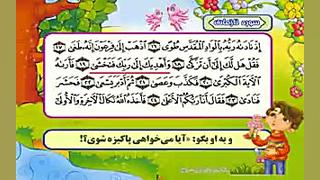 سوره نازعات
إِذْ نَادَىٰهُ رَبُّهُ بِالْوَادِ الْمُقَدَّسِ طُوًى ﴿١٦﴾ اذْهَبْ إِلَىٰ فِرْعَوْنَ إِنَّهُ طَغَىٰ ﴿١٧﴾
فَقُلْ هَل لَّكَ إِلَىٰ أَن تَزَكَّىٰ ﴿١٨﴾ وَأَهْدِيَكَ إِلَىٰ رَبِّكَ فَتَخْشَىٰ ﴿١٩﴾ فَأَرَىٰهُ
الْآيَةَ الْكُبْرَىٰ ﴿٢٠﴾ فَكَذَّبَ وَعَصَىٰ ﴿٢١﴾ ثُمَّ أَدْبَرَ يَسْعَىٰ ﴿٢٢﴾ فَحَشَرَ
فَنَادَىٰ ﴿٢٣﴾ فَقَالَ أَنَا رَبُّكُمُ الْأَعْلَىٰ ﴿٢٤﴾ فَأَخَذَهُ اللَّهُ نَكَالَ الْآخِرَةِ وَالْأُولَىٰ
و به او بگو: «آیا می‌خواهی پاکیزه شوی؟!